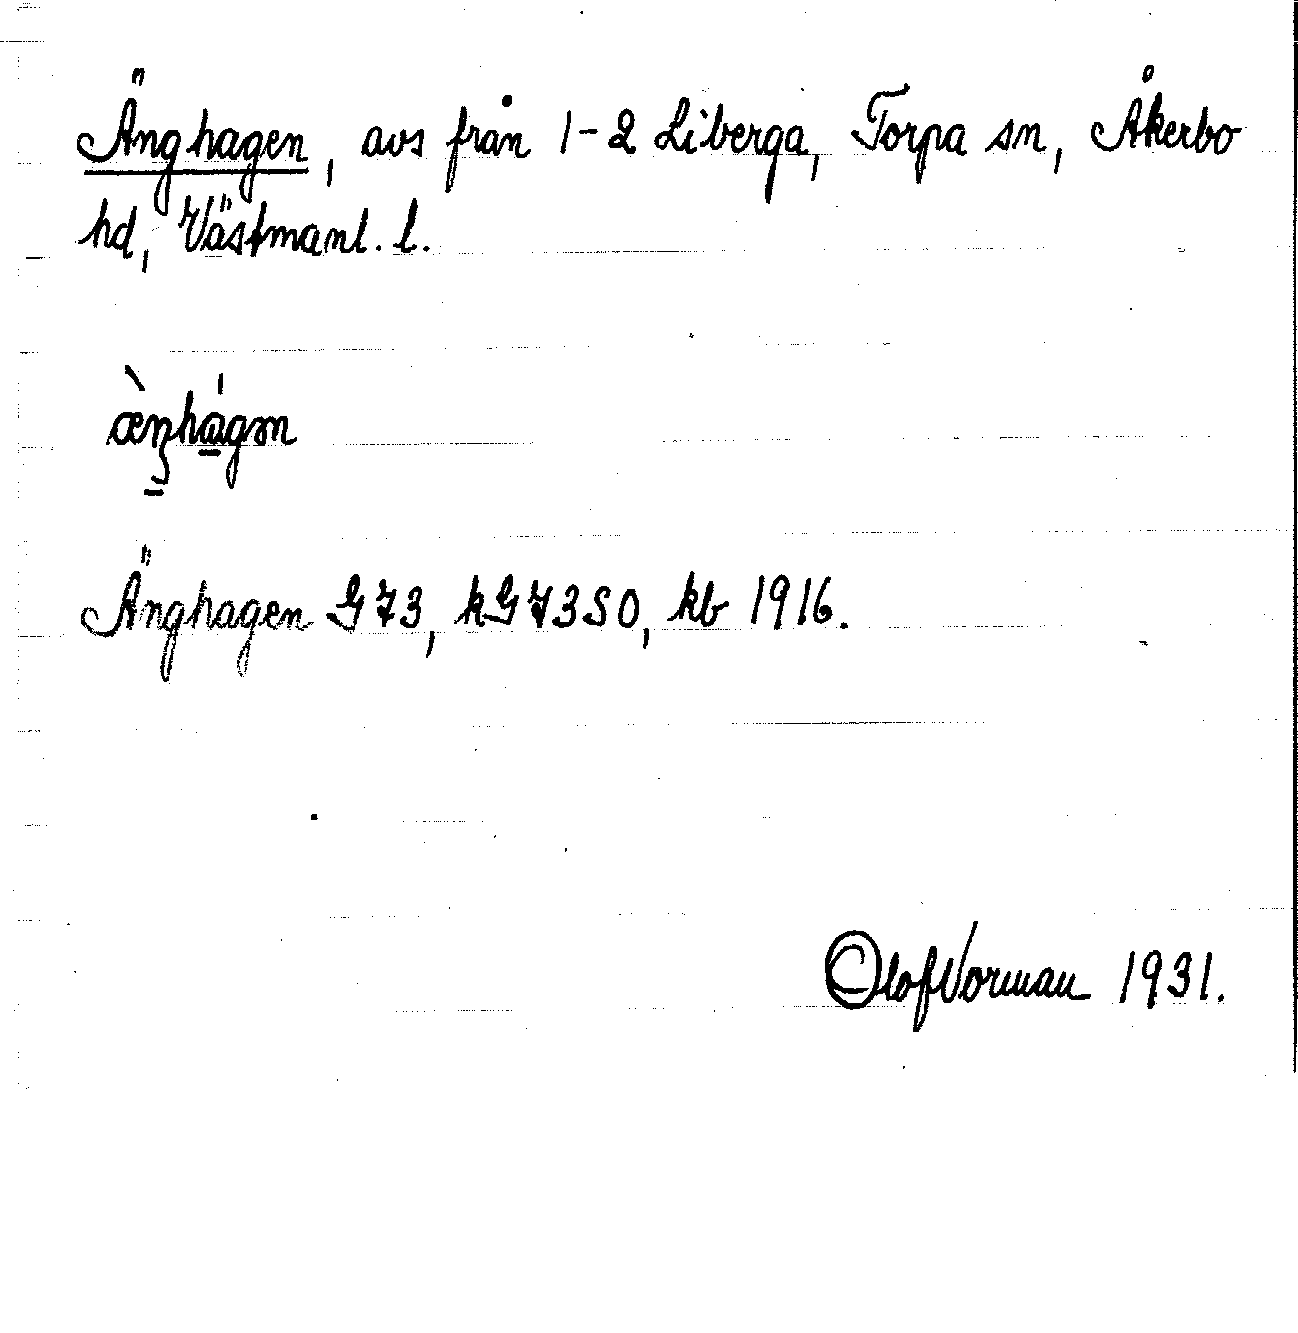 Änghagen, avs från 1-2 Liberga, Torpa sn, Åkerbo
hd, Västmanl. l.
æ̀ŋhágən
Änghagen G73, kG73SO, kb 1916.
Olof Norman 1931.